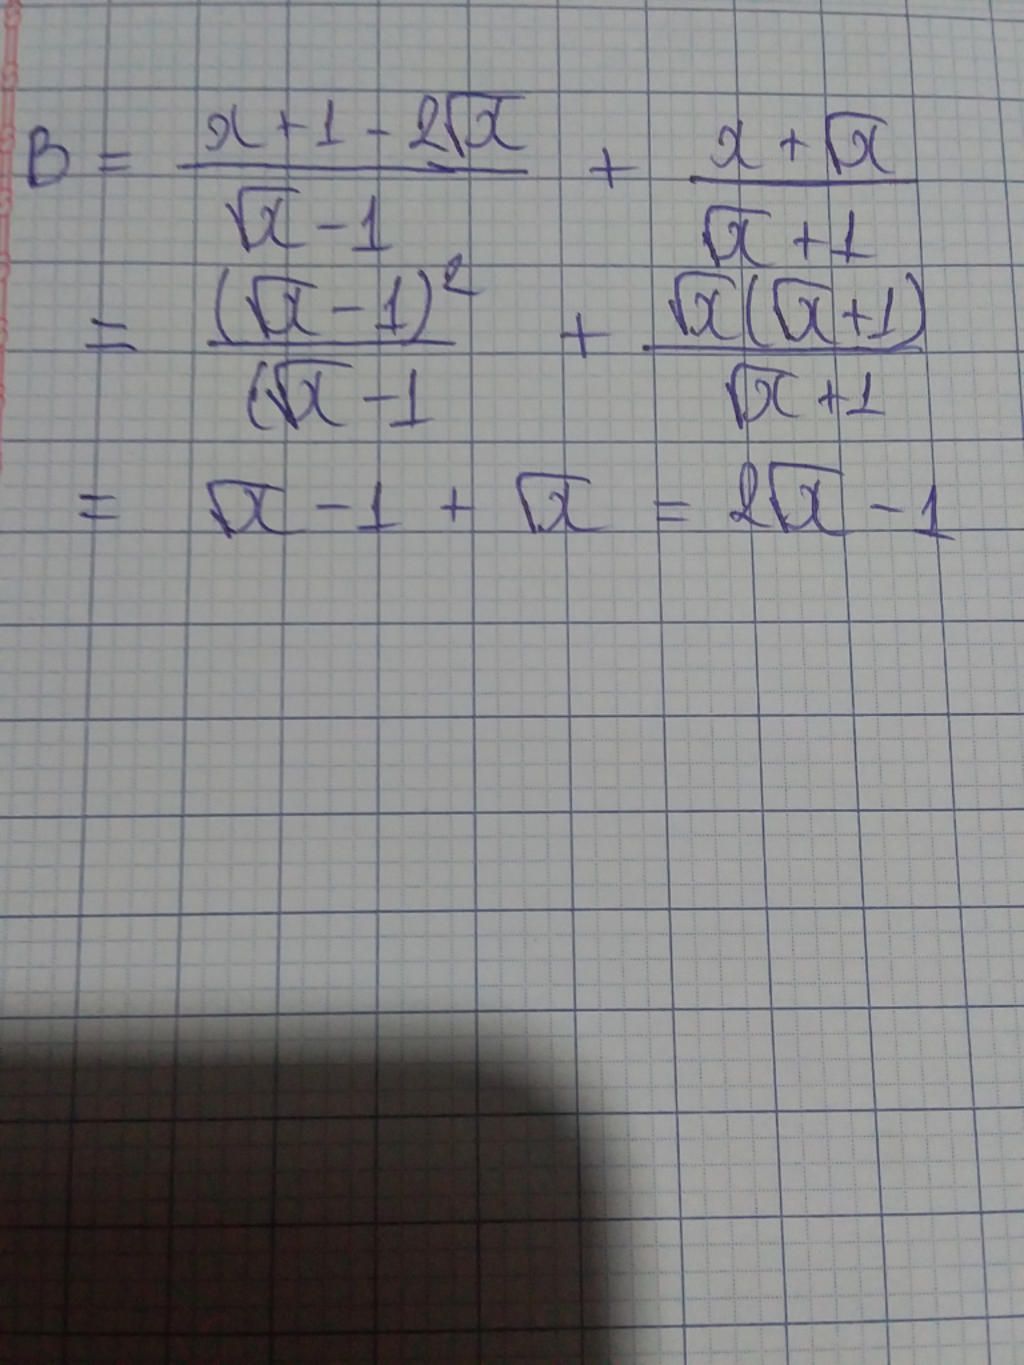 B = \frac{x+1-2\sqrt{x}}{\sqrt{x}-1} + \frac{x+\sqrt{x}}{\sqrt{x}+1}
= \frac{(\sqrt{x}-1)^2}{(\sqrt{x}-1} + \frac{\sqrt{x}(\sqrt{x}+1)}{\sqrt{x}+1}
= \sqrt{x} - 1 + \sqrt{x} = 2\sqrt{x} - 1